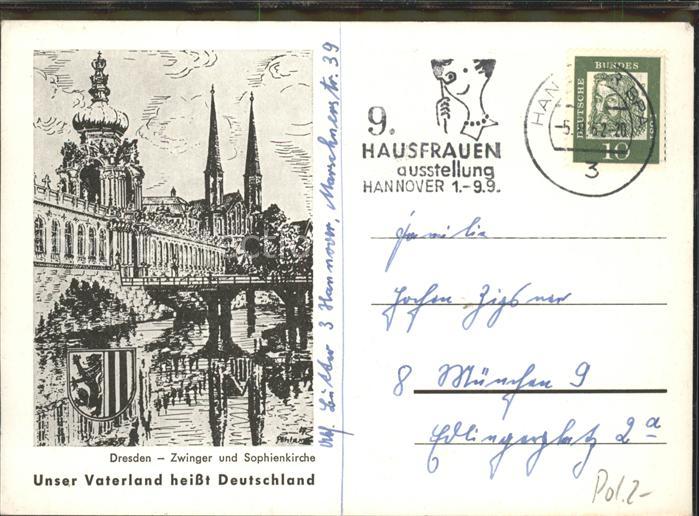 Dresden – Zwinger und Sophienkirche
Unser Vaterland heißt Deutschland
3 Hannover, Marschnerstr. 39
9.
HAUSFRAUEN
ausstellung
HANNOVER 1.-9.9.
HANNOVER
3
DEUTSCHE BUNDESPOST
10
Familie
Jochen
8 München 9
Edlingerplatz 2a
Pol. 2-